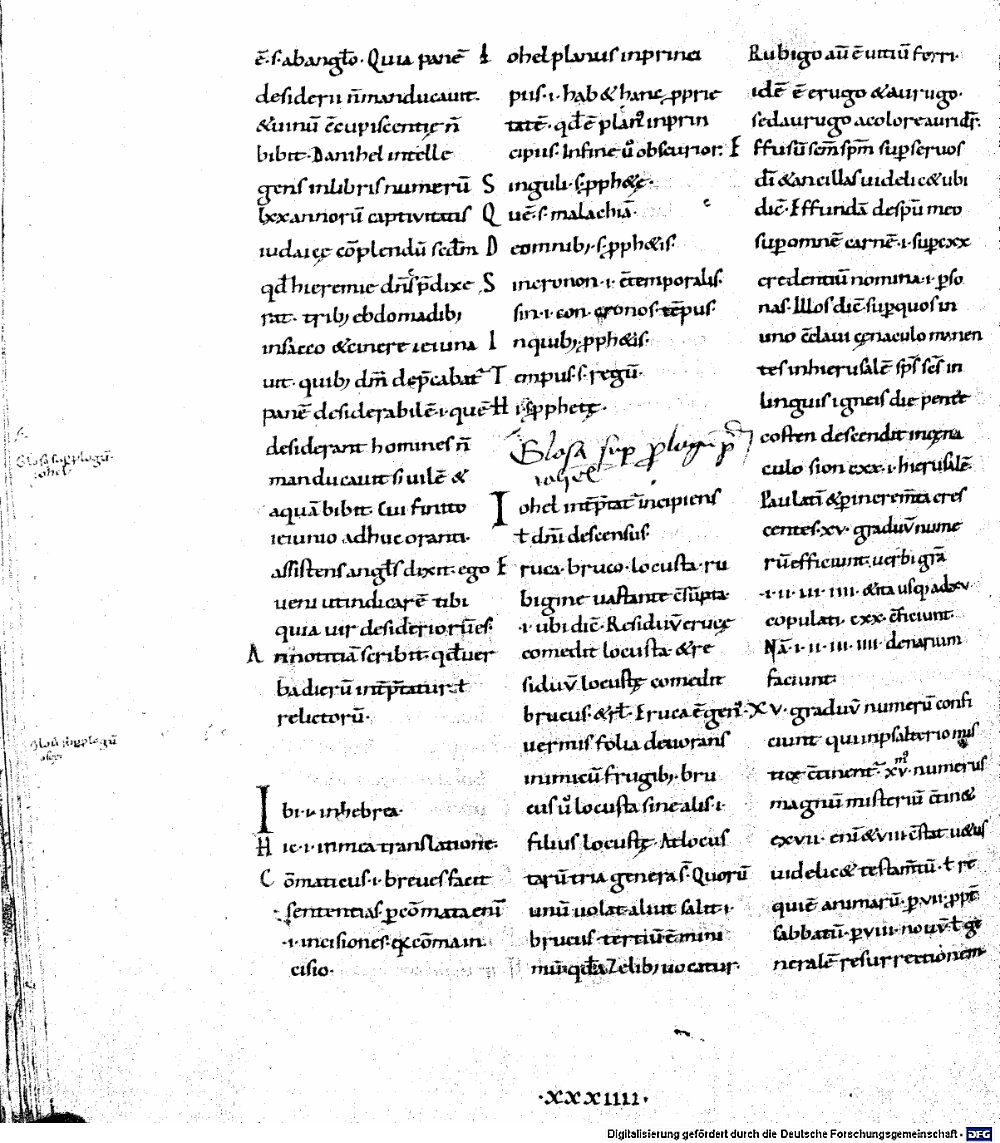 ē·ſ· ab anglo· Quia panē
desiderii n̄ manducauit·
& uinū ɔ̄cupiscentię n̄
bibit· Danihel intelle
gens in libris numerū
lxx annorū captiuitatis
iudaicę cōplendū sedm
qd hieremie dn̄s p̄dixe
rat· trib; ebdomadib;
in sacco & cinere ieiuna
uit· quib; dm̄ dep̄cabat᷑
panē desiderabilē ·i· quē
desiderant homines n̄
manducauit s; uilē &
aquā bibit· Cui finito
ieiunio adhuc oranti·
assistens angls dixit· ego
ueni ut indicarē tibi
quia uir desideriorū es·
A in notitiā scribit· qd uer
ba dierū int̄p̄tatur ł
relictorū·
I bi ·i· in hebrea·
H ic ·i· in mea translatione·
C ōmaticus ·i· breues facit
sententias p cōmata enī
·i· incisiones· cōma in
cisio·
I ohel planus in princi
piis ·i· hab& hanc pprie
tatē· qd ē plan᷒ in prin
cipiis· In fine ū obscurior·
S inguli ·ſ· pph&ę·
Q uē ·ſ· malachiā·
D e omnib; ·ſ· pph&is·
S incronon ·i· ɔ̄temporalis·
sin ·i· con· cronos tēpus·
I n quib; pph&is·
T empus ·ſ· regū·
H i ·ſ· pphetę·
Glosa sup plogū
iohel
I ohel int̄p̄tat᷑ incipiens
ł dn̄i descensus·
E ruca· bruco· locusta· ru
bigine uastante ɔ̄sūpta·
·i· ubi dic̄· Residuū erucę
comedit locusta & re
siduū locustę comedit
brucus· & rł· Eruca ē gen᷒
uermis folia deuorans
inimicū frugib;· bru
cus ū locusta sine alis ·i·
filius locustę· At locus
tarū tria genera s̄· Quorū
unū uolat· aliut salit ·i·
brucus tertiū ē mini
mū· qd a Zelib; uocatur·
Rubigo aū ē uitiū ferri·
idē ē erugo & aurugo·
sed aurugo a colore auri dr̄·
E ffusū scm̄ spm̄ sup seruos
di & ancillas uidelic& ubi
dic̄· Effundā de spū meo
sup omnē carnē ·i· sup cxx
credentiū nomina ·i· pso
nas· Illos dic̄ sup quos in
uno ɔ̄claui cęnaculo manen
tes in hierusalē sps̄ scs̄ in
linguis igneis die pente
costen descendit in cęna
culo sion cxx ·i· hierusalē·
Paulatī & p incrēmta cres
centes· xv· graduū nume
rū efficiunt· uerbi grā
·i· ii· iii· iiii· & ita usq; ad xv·
copulati· cxx· ɔ̄ficiunt·
Nā ·i· ii· iii· iiii· denarium
faciunt·
X v· graduū numerū confi
ciunt qui in psalterio mis
tice ɔ̄tinent᷑· xv numerus
magnū misteriū ɔ̄tin&
ex vii· enī & viii ɔ̄stat· u&us
uidelic& testamtū· ł re
quiē animarū· p· vii· ppt̄
sabbatū· p viii· nouū· ł ge
neralē resurrectionem·
Glosa sup plogū
iohel
Glosa sup plogū
·XXXIIII·
Digitalisierung gefördert durch die Deutsche Forschungsgemeinschaft - DFG